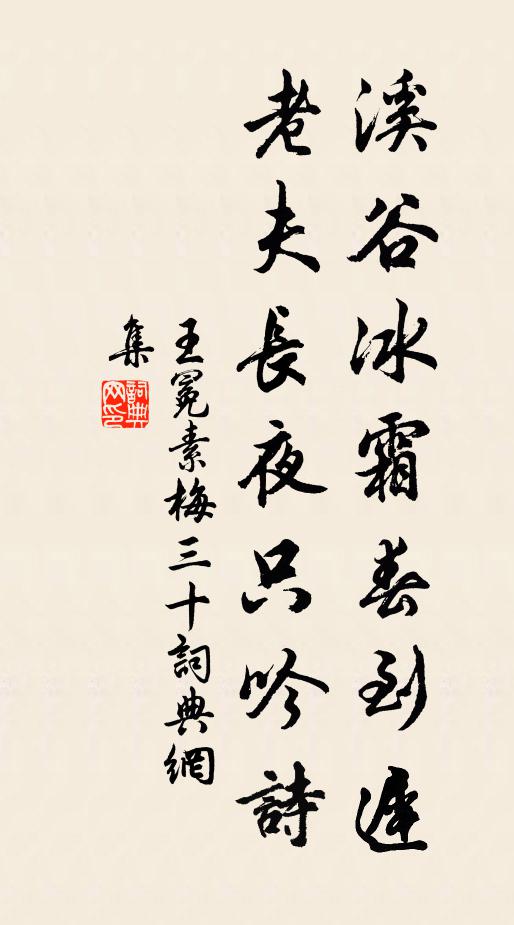 溪谷冰霜春到遲
老夫長夜只吟詩
王冕素梅三十詞典網
集
詞典網印